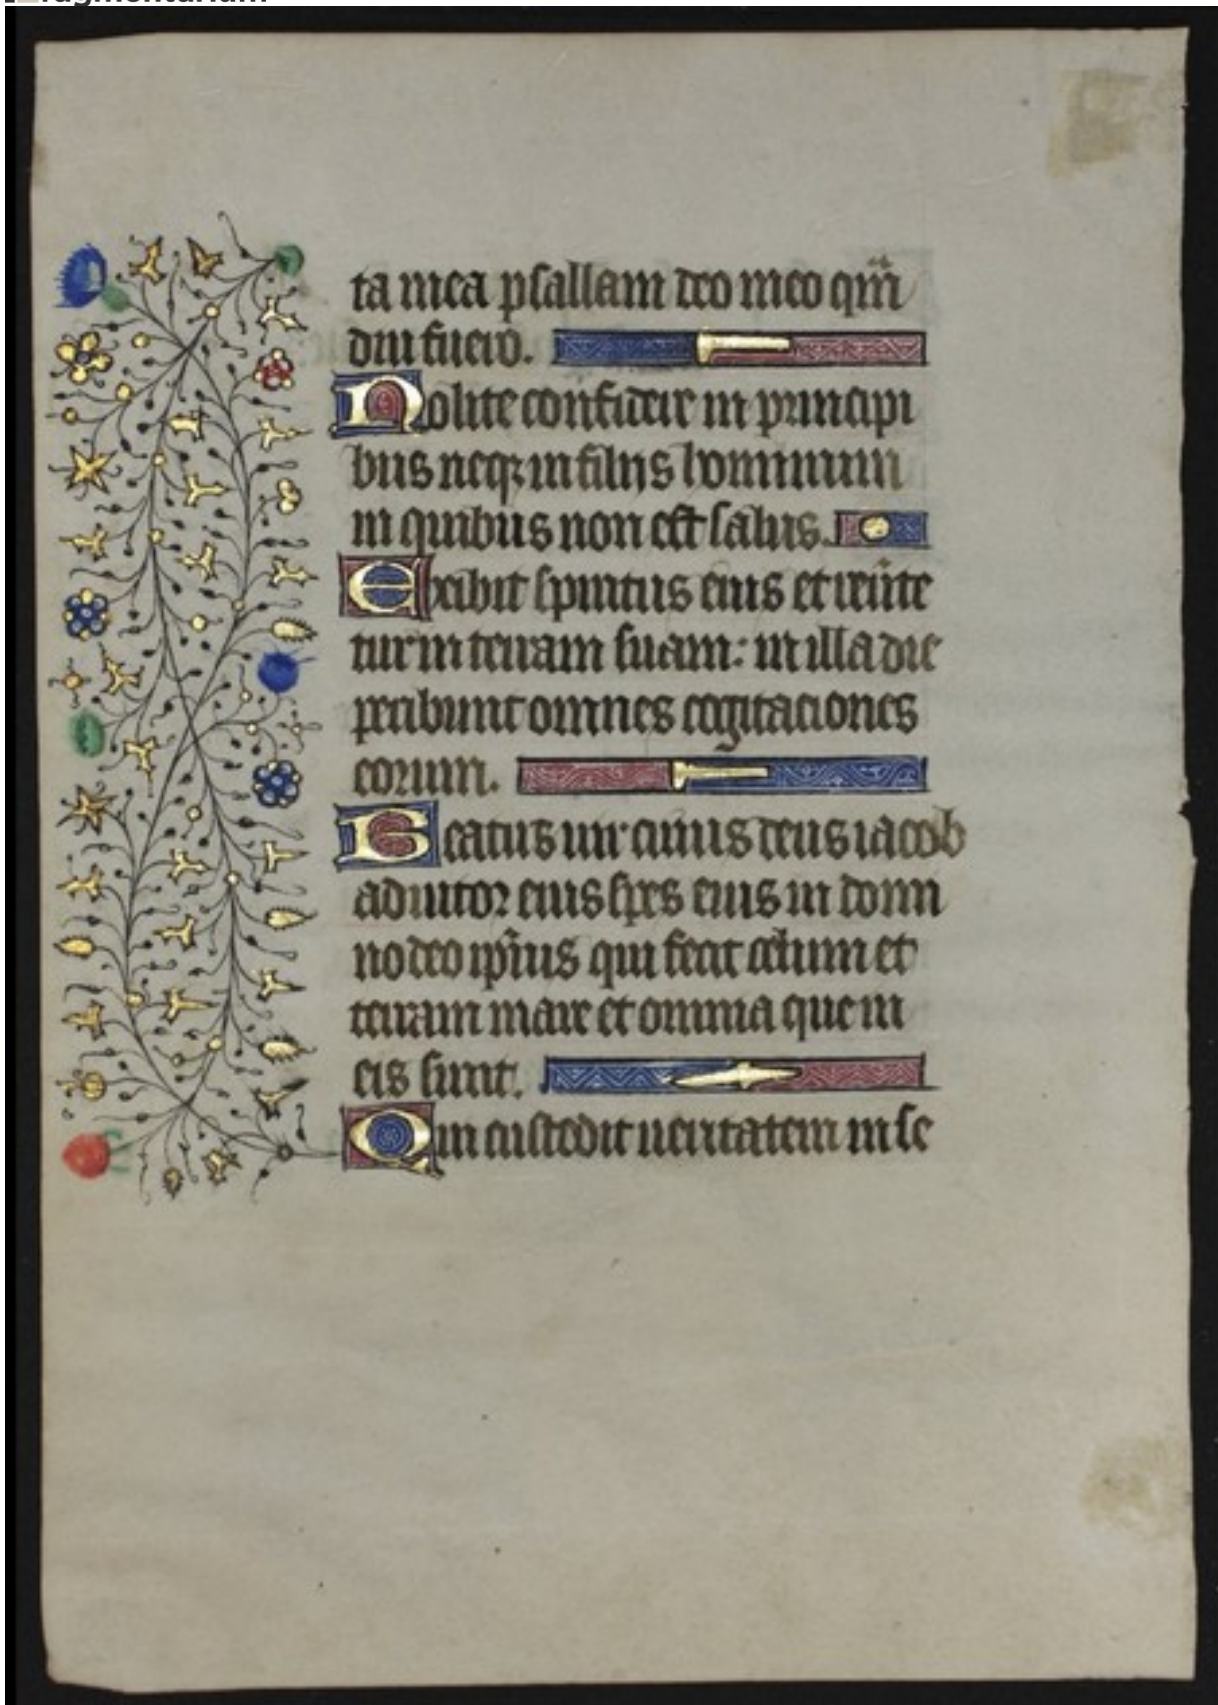 ragmentarium
ta mea psallam deo meo qm̄
diu fuero.
Nolite confidere in principi
bus neqꝫ in filijs hominum
in quibus non est salus.
Exibit spiritus eius et reūte
tur in terram suam: in illa die
peribunt omnes cogitaciones
eorum.
Beatus uir cuius deus iacob
adiutor eius spes eius in domi
no deo ip̄ius qui fecit celum et
terram mare et omnia que in
eis sunt.
Qui custodit ueritatem in se